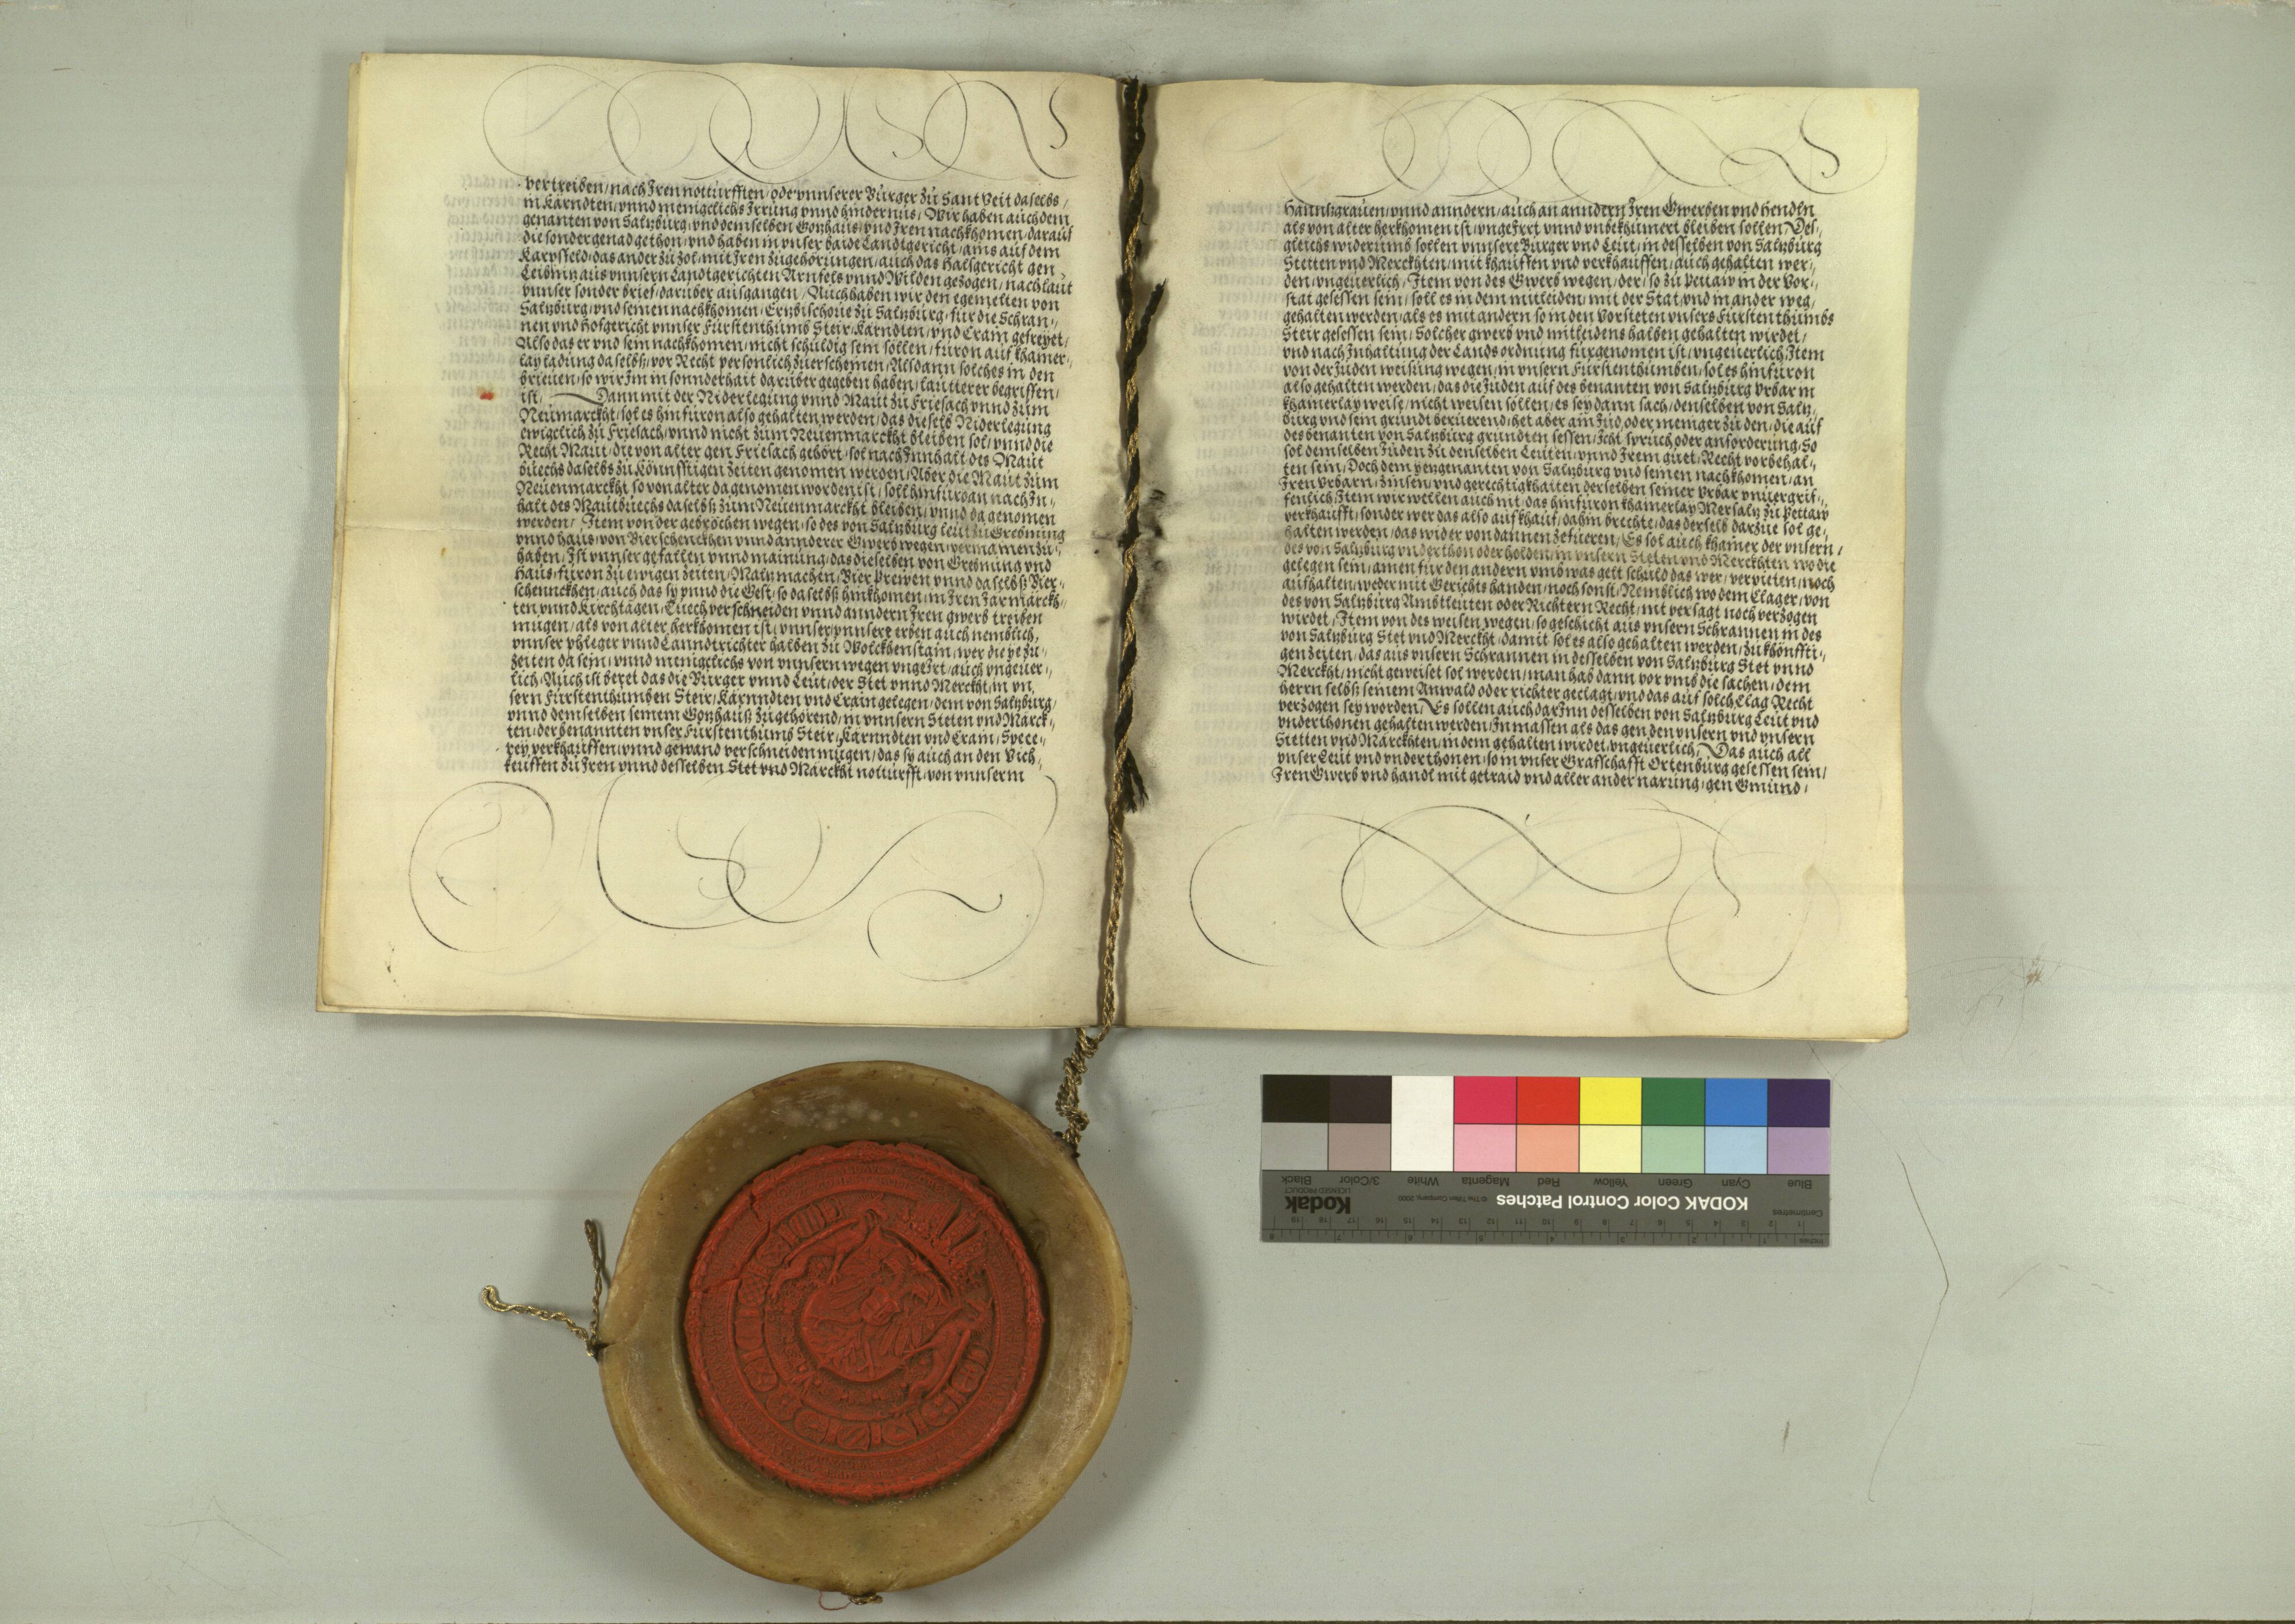 vertreiben / nach Iren notturfften / oder vnnserer Burger zu Sant Veit daselbs /
in Kärndten / vnnd menigclichs Irrung vnnd hindernus / Wir haben auch dem
genanten von Saltzburg / vnd demselben Gotzhaus / vnd Iren nachkhomen / darauf
die sonder genad gethon / vnd haben in vnser baide Landtgericht / ains auf dem
Karpffeld / das ander zu Zol / mit Iren zugehörungen / auch das Halsgericht gen
Leibnitz aus vnnsern Landtgerichten Arnfels vnnd Wildon gezogen / nach laut
vnnser sonder brief / darüber ausgangen / Auch haben wir den egemelten von
Saltzburg / vnd seinen nachkhomen / Ertzbischoue zu Saltzburg / für die Schran-
nen vnd Hofgericht vnnser Fürstenthumb Steir / Kärndten / vnd Crain gefreyet /
Also das er vnd sein nachkhomen / nicht schuldig sein sollen / füron auf khamer-
lay ladung daselbs / vor Recht personlich zuerscheinen / Als dann solches in den
brieuen / so wir Im in sonnderhait darüber gegeben haben / lautterer begriffen /
ist / Dann mit der Niderlegung vnnd Maut zu Friesach vnnd zum
Neumarckht / sol es hinfüron also gehalten werden / das dieselb Niderlegung
ewigclich zu Friesach / vnnd nicht zum Neuenmarckht bleiben sol / vnnd die
Recht Maut / die von alter gen Friesach gehört / sol nach Innhalt des Maut
buechs daselbs zu Könnfftigen zeiten genomen werden / Aber die Maut zum
Neuenmarckht so von alter da genomen worden ist / soll hinfüran nach In-
halt des Mautbuechs daselbs zum Neuenmarckht bleiben / vnnd da genomen
werden / Item von der gebrochen wegen / so des von Saltzburg leut zu Grebming
vnnd Haus / von Bierschenckhen vnnd annderer Gwerb wegen / vermainen zu-
haben / Ist vnnser gefallen vnnd mainung / das dieselben von Grebming vnd
Haus / füron zu ewigen zeiten / Maltz machen / Bier prewen vnnd daselbs Bier-
schennckhen / auch das sy vnnd die Gest / so daselbs hinkhomen / in Iren Jarmärckh-
ten vnnd Kirchtägen / Tuech verschneiden vnnd anndern Iren gwerb treiben
mügen / als von alter herkhomen ist / vnnser / vnnsere erben auch nemblich /
vnnser phleger vnnd Lanndtrichter halben zu Wolckhenstain / wer die ye zu-
zeiten da sein / vnnd menigclichs von vnnsern wegen vngeirt / auch vngeuer-
lich / Auch ist beret das die Burger vnnd Leut / der Stet vnnd Merckht / in vn-
sern Fürstenthumben Steir / Kärnndten vnd Crain gelegen / dem von Saltzburg /
vnnd demselben seinem Gotzhauss zugehörend / in vnnsern Steten vnd Märck-
ten / der benannten vnser Fürstenthumb Steir / Kärnndten vnd Crain / Spece-
rey verkhauffen / vnnd gewand verschneiden mügen / das sy auch an den Vich-
keuffen zu Iren vnnd desselben Stet vnd Märckht notturfft / von vnnserm
Hannssgrauen / vnnd anndern / auch an anndern Iren Gwerben vnd Hendln
als von alter herkhomen ist / vngeirrt vnnd vnbekhümert bleiben sollen / Des-
gleichs widerumb sollen vnnsere Burger vnd Leut / in desselben von Saltzburg
Stetten vnd Merckhten / mit khauffen vnd verkhauffen / auch gehalten wer-
den / vngeuerlich / Item von des Gwerb wegen / der / so zu Pettaw in der Vor-
stat gesessen sein / soll es in dem mitleiden / mit der Stat / vnd in ander weg /
gehalten werden / als es mit andern so in den Vorsteten vnsers Fürstenthumbs
Steir gesessen sein / Solcher gwerb vnd mitleidens halben gehalten wirdet /
vnd nach Inhaltung der Lands ordnung fürgenomen ist / vngeuerlich / Item
von der Juden weisung wegen / in vnsern Fürstenthumben / sol es hinfüron
also gehalten werden / das die Juden auf des benanten von Saltzburg vrbar in
khamerlay weise / nicht weisen sollen / es sey dann sach / denselben von Saltz-
burg vnd sein gründt berüerend / het aber ain Jud / oder meniger Juden / die auf
des benanten von Saltzburg gründten sessen / Icht spruch oder anforderung / So
sol demselben Juden zu denselben Leuten / vnnd Irem guet / Recht vorbehal-
ten sein / Doch dem yetzgenanten von Saltzburg vnd seinen nachkhomen / an
Iren vrbarn / Zinsen / vnd gerechtigkhaiten derselben seiner vrbar vnuergrif-
fenlich / Item wir wellen auch nit / das hinfüron khamerlay Mersaltz zu Pettaw
verkhaufft / sonder wer das also aufkhauf / dahin brechte / das derselb darzue sol ge-
halten werden / das wider von dannen zefüeren / Es sol auch khainer der vnsern /
des von Saltzburg vnderthon oder holden / in vnsern Steten vnd Merckhten wo die
gelegen sein / ainen für den andern vmb was gelt schuld das wer / verpieten / noch
aufhalten / weder mit Gerichts handen / noch sonst / Nemblich wo dem Clager / von
des von Saltzburg Ambtleuten oder Richtern Recht / nit versagt noch verzogen
wirdet / Item von des weisen wegen / so geschicht aus vnsern Schrannen in des
von Saltzburg Stet vnd Merckht / damit sol es also gehalten werden / zu khönffti-
gen zeiten / das aus vnsern Schrannen in desselben von Saltzburg Stet vnnd
Merckht / nicht geweiset sol werden / man hab dann vor vmb die sachen / dem
herrn selbs seinem Anwald oder richter geclagt / vnd das auf solch Clag Recht
verzogen sey worden / Es sollen auch darInn desselben von Saltzburg Leut vnd
vnderthonen gehalten werden / In massen als das gen den vnsern vnd vnsern
Stetten vnd Märckhten / in dem gehalten wirdet / vngeuerlich / Das auch all
vnser Leut vnd vnderthonen / so in vnser Grafschafft Ortenburg gesessen sein /
Iren Gwerb vnd handl mit getraid vnd aller ander narung / gen Gmünd /
KODAK Color Control Patches
Kodak
LICENSED PRODUCT
© The Tiffen Company, 2000
Centimetres
Inches
Blue
Cyan
Green
Yellow
Red
Magenta
White
3/Color
Black